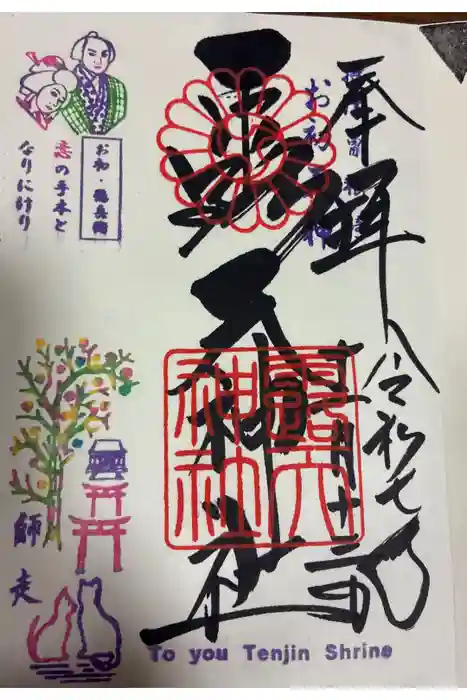 奉拝
令和七
お初天神
露天神社
露天神社
お初・徳兵衛
恋の手本と
なりにけり
師走
To you Tenjin Shrine